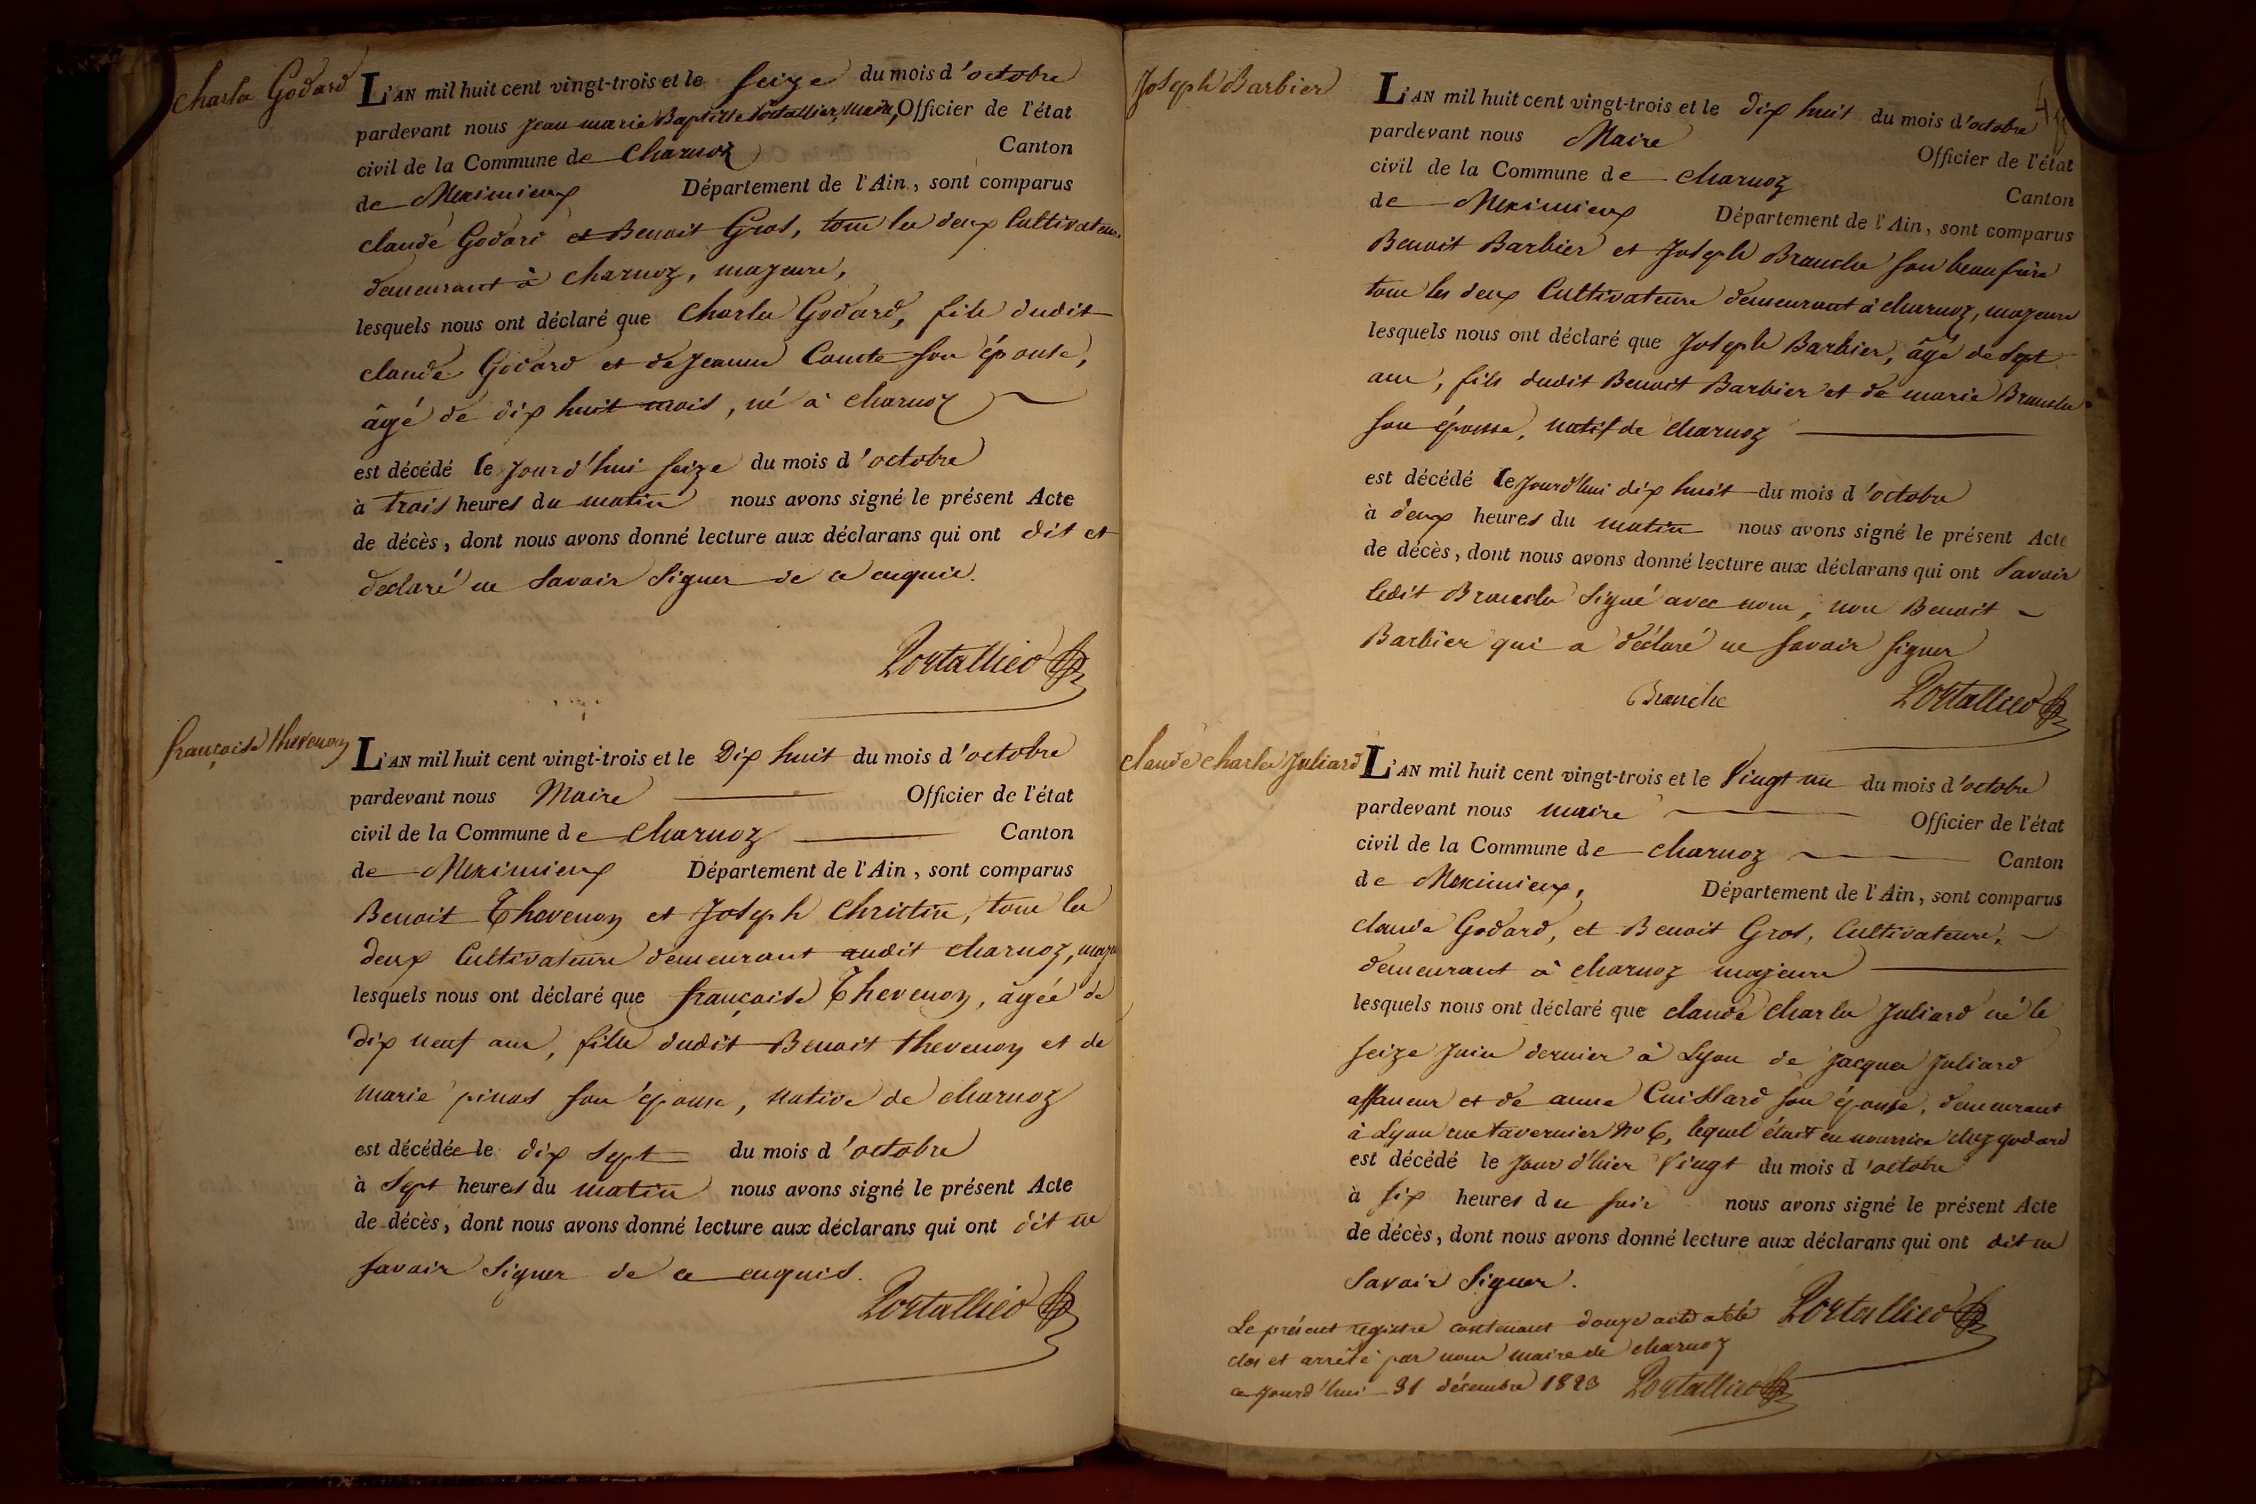 Charles Godard
L'AN mil huit cent vingt-trois et le seize du mois d'octobre
pardevant nous jean marie Baptiste Portallier, maire, Officier de l'état
civil de la Commune de Charnoz Canton
de Meximieux Département de l'Ain, sont comparus
claude Godard et Benoit Gros, tous les deux Cultivateurs
demeurant à charnoz, majeurs,
lesquels nous ont déclaré que Charles Godard, fils dudit
claude Godard et de jeanne Comte son épouse,
âgé de dix huit mois, né à charnoz
est décédé le jourd'hui seize du mois d'octobre
à trois heures du matin nous avons signé le présent Acte
de décès, dont nous avons donné lecture aux déclarans qui ont dit et
declaré ne Savoir Signer de ce enquis.
Portallier
françoise thevenon
L'AN mil huit cent vingt-trois et le Dix huit du mois d'octobre
pardevant nous Maire Officier de l'état
civil de la Commune de Charnoz Canton
de Meximieux Département de l'Ain, sont comparus
Benoit Thevenon et Joseph Christin, tous les
deux Cultivateurs demeurant audit charnoz,
lesquels nous ont déclaré que françoise Thevenon, âgée de
dix neuf ans, fille dudit Benoit thevenon et de
marie pinas son épouse, native de charnoz
est décédée le dix sept du mois d'octobre
à Sept heures du matin nous avons signé le présent Acte
de décès, dont nous avons donné lecture aux déclarans qui ont dit ne
savoir Signer de ce enquis.
Portallier
Joseph Barbier
L'AN mil huit cent vingt-trois et le dix huit du mois d'octobre
pardevant nous Maire Officier de l'état
civil de la Commune de charnoz Canton
de Meximieux Département de l'Ain, sont comparus
Benoit Barbier et Joseph Branche son beaufrère
tous les deux Cultivateurs demeurant à charnoz, majeurs
lesquels nous ont déclaré que Joseph Barbier, âgé de Sept
ans, fils dudit Benoit Barbier et de marie Branche
son épouse, natif de charnoz
est décédé le jourd'hui dix huit du mois d'octobre
à deux heures du matin nous avons signé le présent Acte
de décès, dont nous avons donné lecture aux déclarans qui ont Savoir
ledit Branche Signé avec nous, non Benoit
Barbier qui a déclaré ne savoir signer
Branche Portallier
claude charles Juliard
L'AN mil huit cent vingt-trois et le Vingt un du mois d'octobre
pardevant nous maire Officier de l'état
civil de la Commune de charnoz Canton
de Meximieux, Département de l'Ain, sont comparus
claude Godard, et Benoit Gros, Cultivateurs,
demeurant à charnoz majeurs
lesquels nous ont déclaré que claude charles Juliard né le
seize juin dernier à Lyon de jacques Juliard
affaneur et de anne son épouse, demeurant
à Lyon rue tavernier No 6, lequel était en nourrice chez godard
est décédé le jour d'hier Vingt du mois d'octobre
à six heures du soir nous avons signé le présent Acte
de décès, dont nous avons donné lecture aux déclarans qui ont dit ne
Savoir Signer.
Portallier
Le présent registre contenant douze actes a été
clos et arrêté par nous maire de charnoz
ce jourd'hui 31 décembre 1823 Portallier